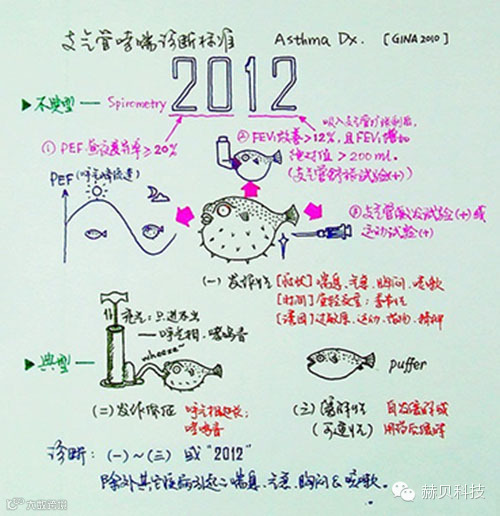 支气管哮喘诊断标准 Asthma Dx. [GINA 2010]
2012
▶不典型 — Spirometry
吸入支气管扩张剂后,
① PEF昼夜变异率≥20%
② FEV₁改善>12%,且FEV₁增加
绝对值>200ml.
(支气管舒张试验(+))
PEF (呼气峰流速)
③支气管激发试验(+)或
运动试验(+)
(一) 发作性 [症状] 喘息、气急、胸闷、咳嗽
[时间] 夜轻夜重; 季节性
[诱因] 过敏原、运动、精神
充气: 只进不出
— 呼气相、哮鸣音
wheeze~
▶典型 —
puffer
(二) 发作体征 呼气相延长;
哮鸣音
(三) 缓解性 自发缓解或
(可逆性) 用药后缓解
诊断: (一)~(三) 或 "2012"
除外其它疾病引起之喘息、气急、胸闷&咳嗽.
大成资讯
赫贝科技